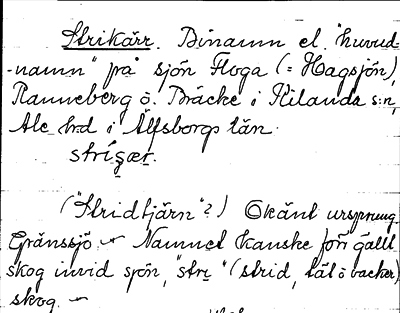 Strikärr. Binamn el. "huvud-
-namn" på sjön Floga (= Hagsjön),
Ranneberg ö. Bräcke i Kilanda s:n,
Ale hrd i Älfsborgs län.
strígær.
("Stridtjärn"?) Okänt ursprung.
Gränssjö. Namnet kanske förr gällt
skog invid sjön, "stri" (strid, tät ö backar)
skog.